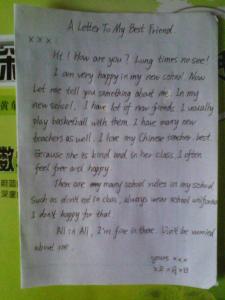 A Letter To My Best Friend
xxx:
Hi! How are you? Lung times no see!
I am very happy in my new school. Now
Let me tell you something about me. In my
new school. I have lot of new friends. I usually
play basketball with them. I have many new
teachers as well. I love my Chinese teacher best.
Because she is kind and in her class, I often
feel free and happy.
There are many school rules in my school
Such as don't eat in class, always wear school uniforms
I don't happy for that.
All in All, I'm fine in there. Don't be worried
about me.
yours xxx
x年x月x日
深
数